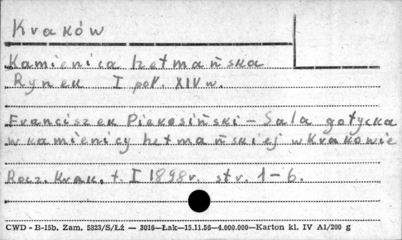 Kraków
Kamienica hetmańska
Rynek I poł. XIV w.
Franciszek Piekosiński – Sala gotycka
w kamienicy hetmańskiej w Krakowie
Rocz. Krak. t. I 1898r. str. 1–6.
CWD - B-15b. Zam. 5823/S/Łź — 3016—Łak—15.11.56—4.000.000—Karton kl. IV A1/200 g